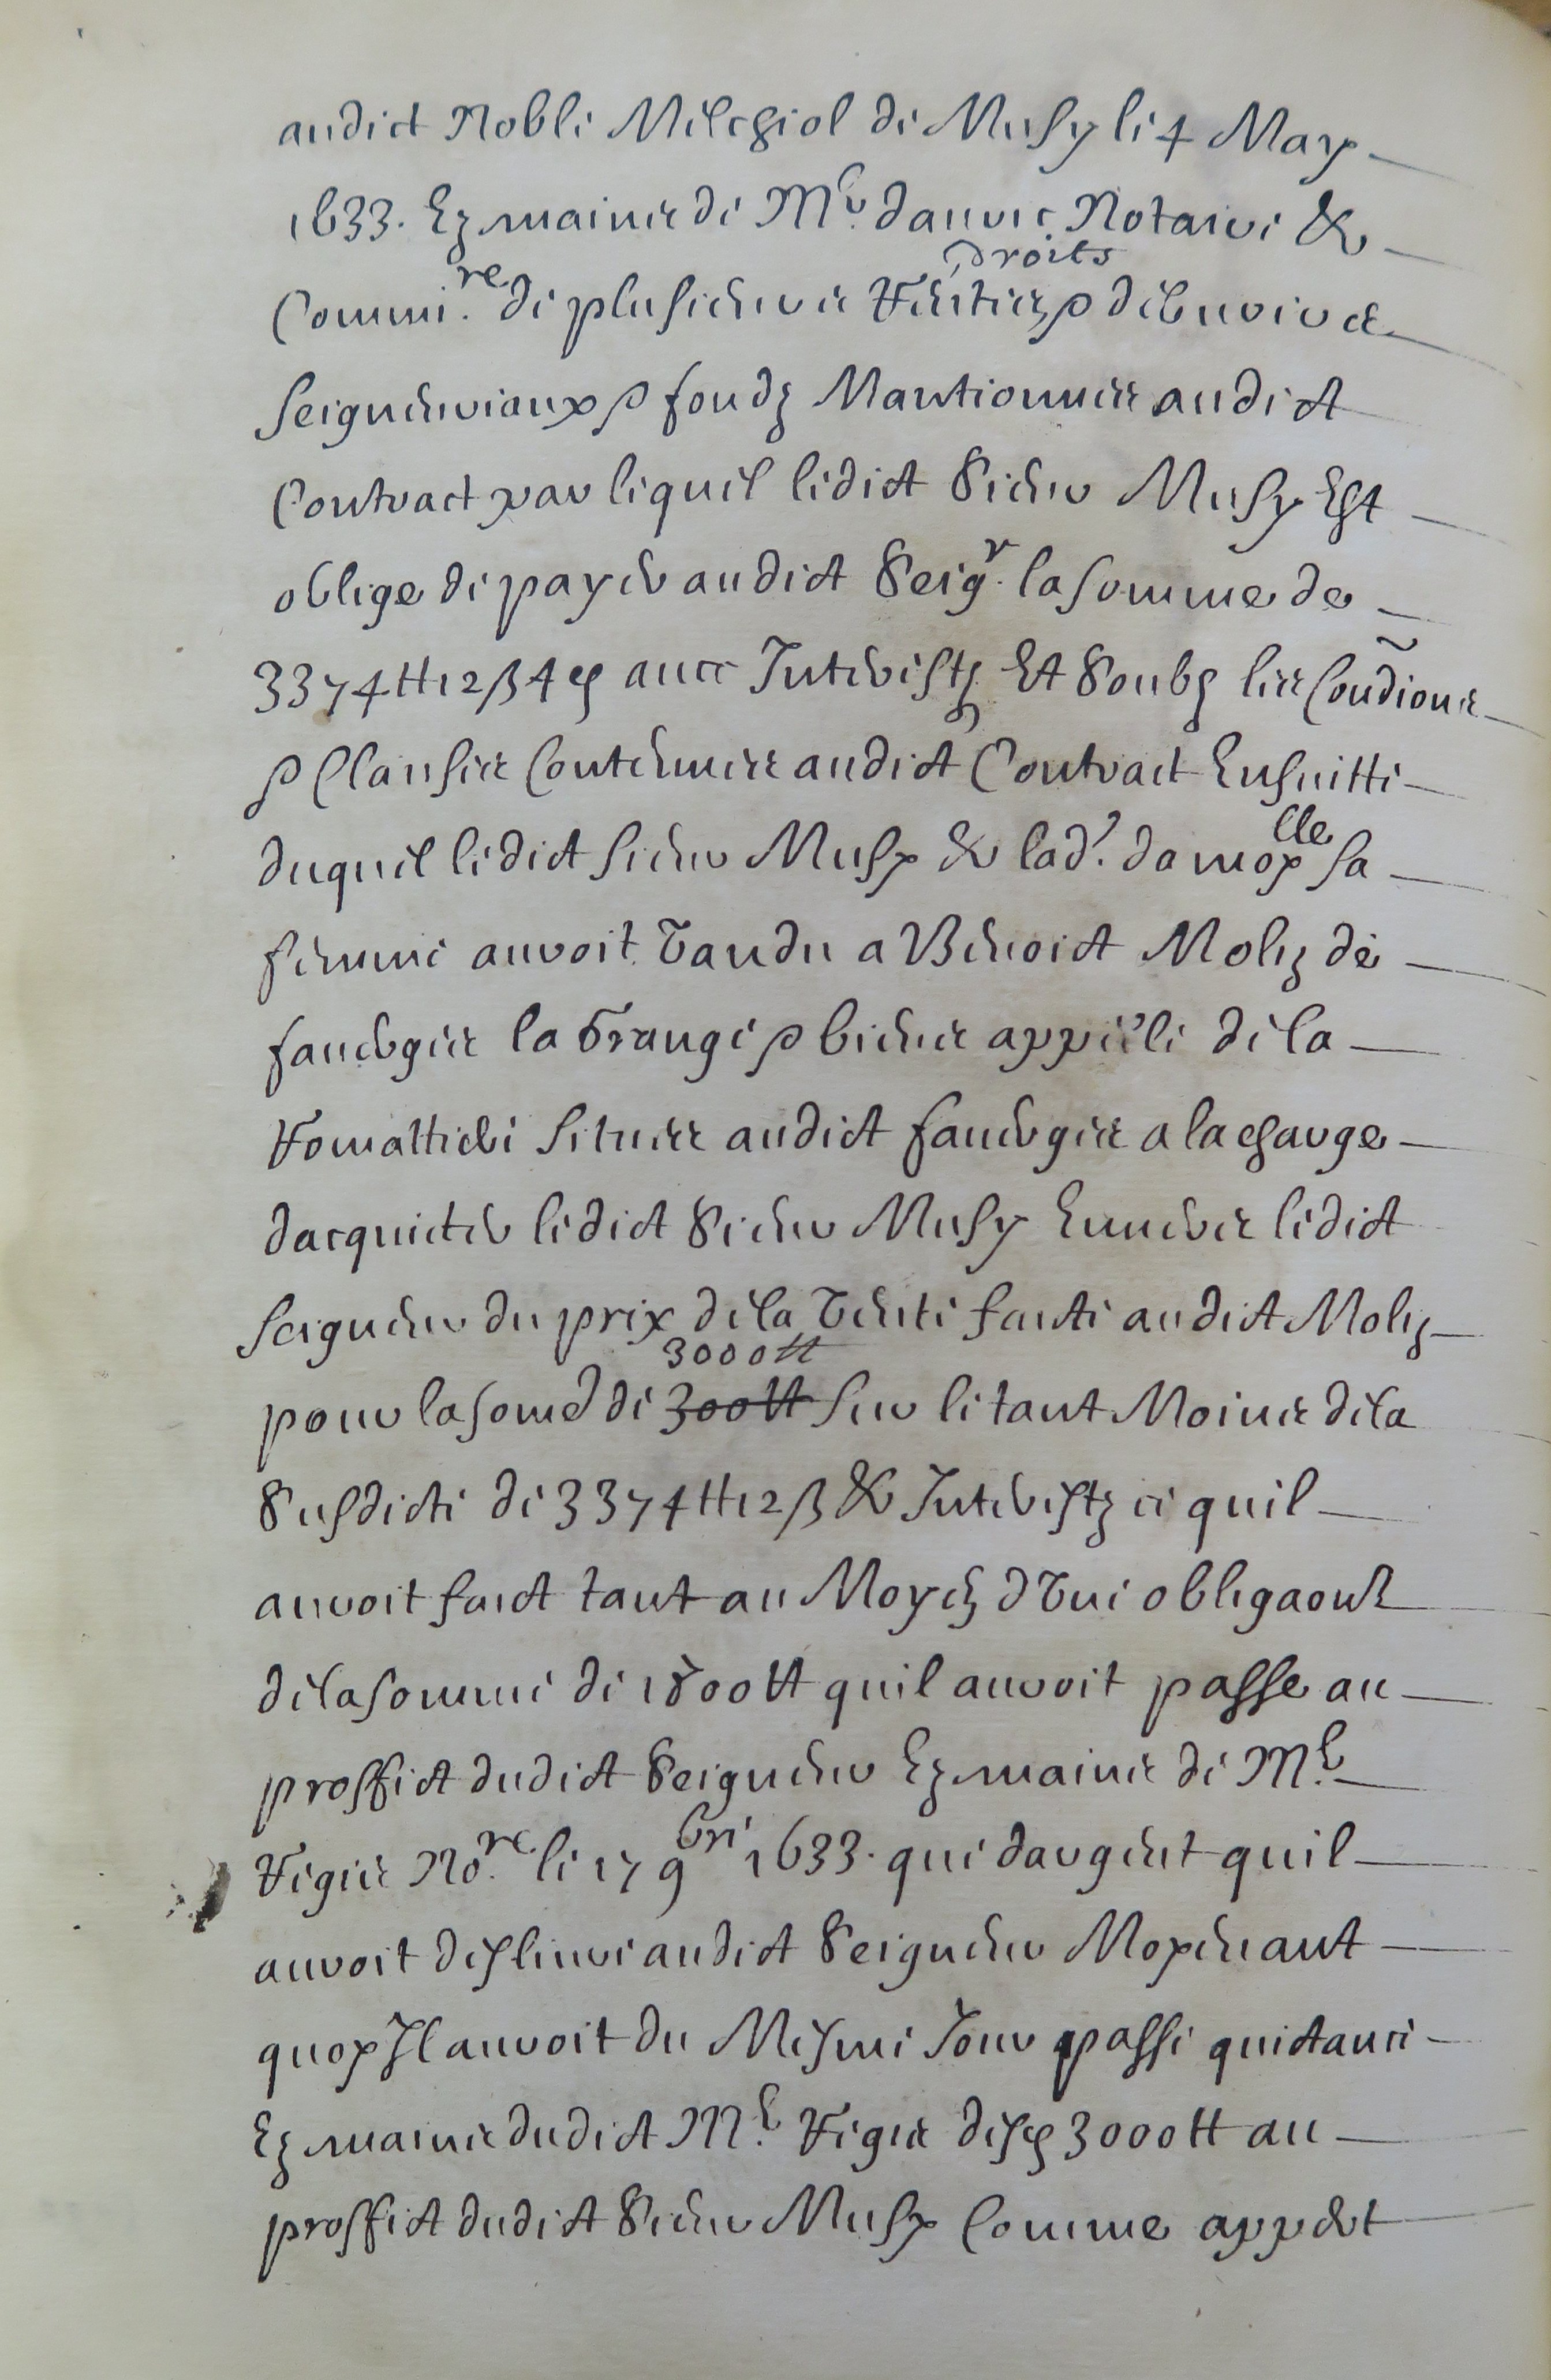 audict Noble Melchiol de Musy le 4 May
1633. Ez mains de Me. danvers Notaire &
Commi.re de plusieurs Rentes & debvoirs
droits
seigneuriaux & fondz Mantionnes audict
Contract par lequel ledict Sieur Musy Est
oblige de payer audict Seigr. la somme de
3374 tt 12 ß 4 d avec Interestz Et Soubz les Condions
& Clauses Contenues audict Contract Ensuitte
duquel ledict sieur Musy & lad. damoylle sa
femme auroit Vandu a Benoict Moliz de
faverges la Grange & biens appelle de la
 situes audict faverges a la charge
dacquicter ledict Sieur Musy Envers ledict
seigneur du prix dela Vente faicte audict Moliz
3000 tt
pour la some de 300 tt surletant Moins dela
Susdicte de 3374 tt 12 ß & Interestz ce quil
auroit faict tant au Moyen d'Vne obligaon
dela somme de 1800 tt quil auroit passe au
proffict dudict Seigneur Ez mains de Me.
Vigier Nore. le 17 9bre 1633. que dargent quil
auroit deslivre audict Seigneur Moyenant
quoy Il auroit du Mesme Jour passe quictance
Ez mains dudict Me. Vigier desd 3000 tt au
proffict dudict Sieur Musy Comme appert